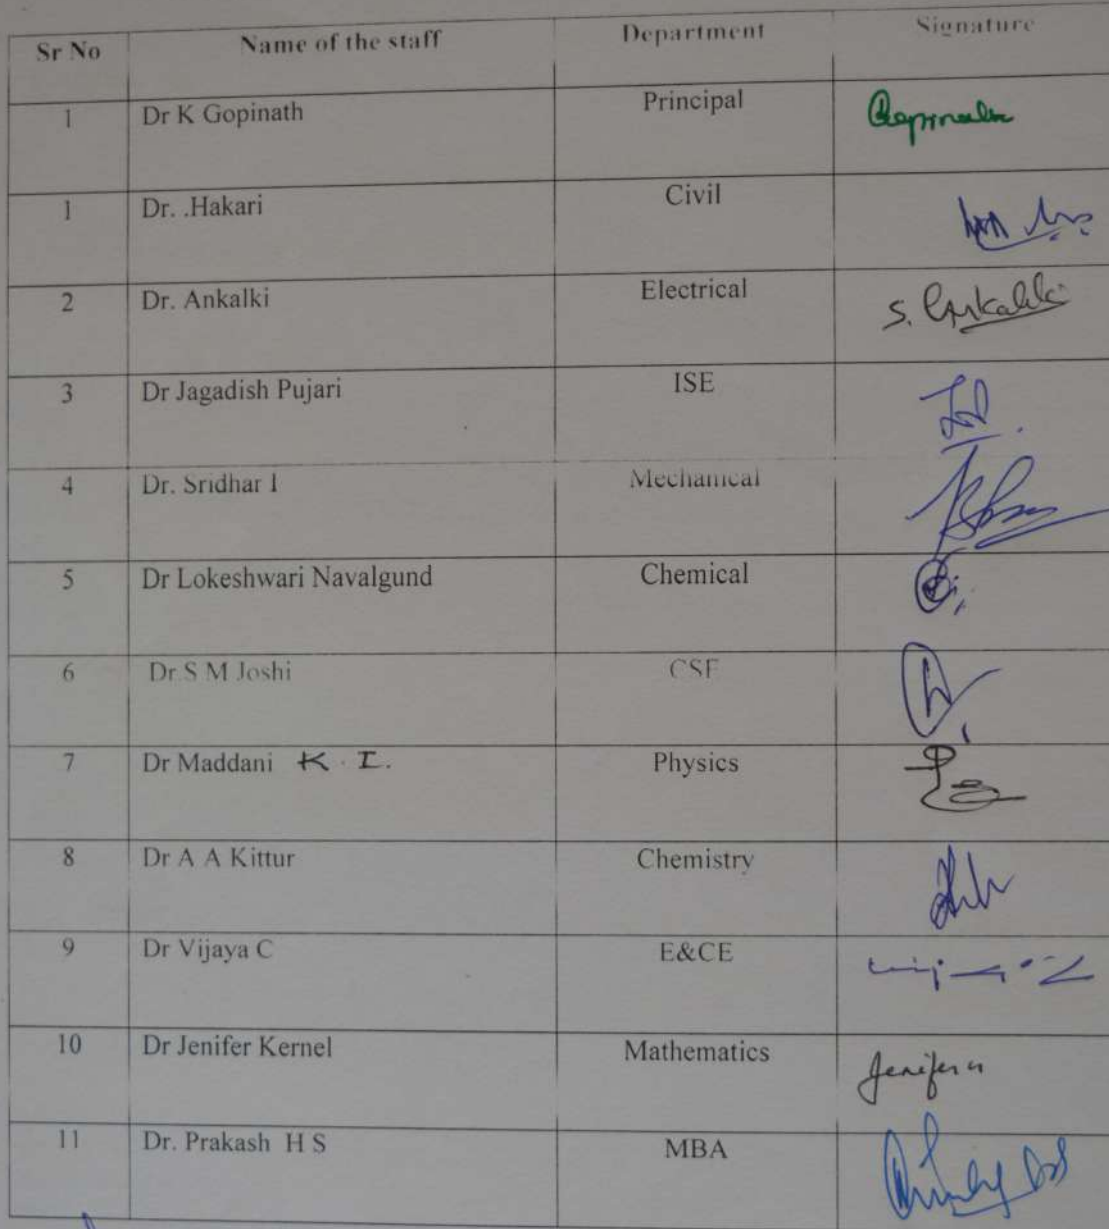 Sr No Name of the staff Department Signature
1 Dr K Gopinath Principal
1 Dr. .Hakari Civil
2 Dr. Ankalki Electrical S. Ankalki
3 Dr Jagadish Pujari ISE
4 Dr. Sridhar I Mechanical
5 Dr Lokeshwari Navalgund Chemical
6 Dr S M Joshi CSE
7 Dr Maddani K. I. Physics
8 Dr A A Kittur Chemistry
9 Dr Vijaya C E&CE
10 Dr Jenifer Kernel Mathematics
11 Dr. Prakash H S MBA